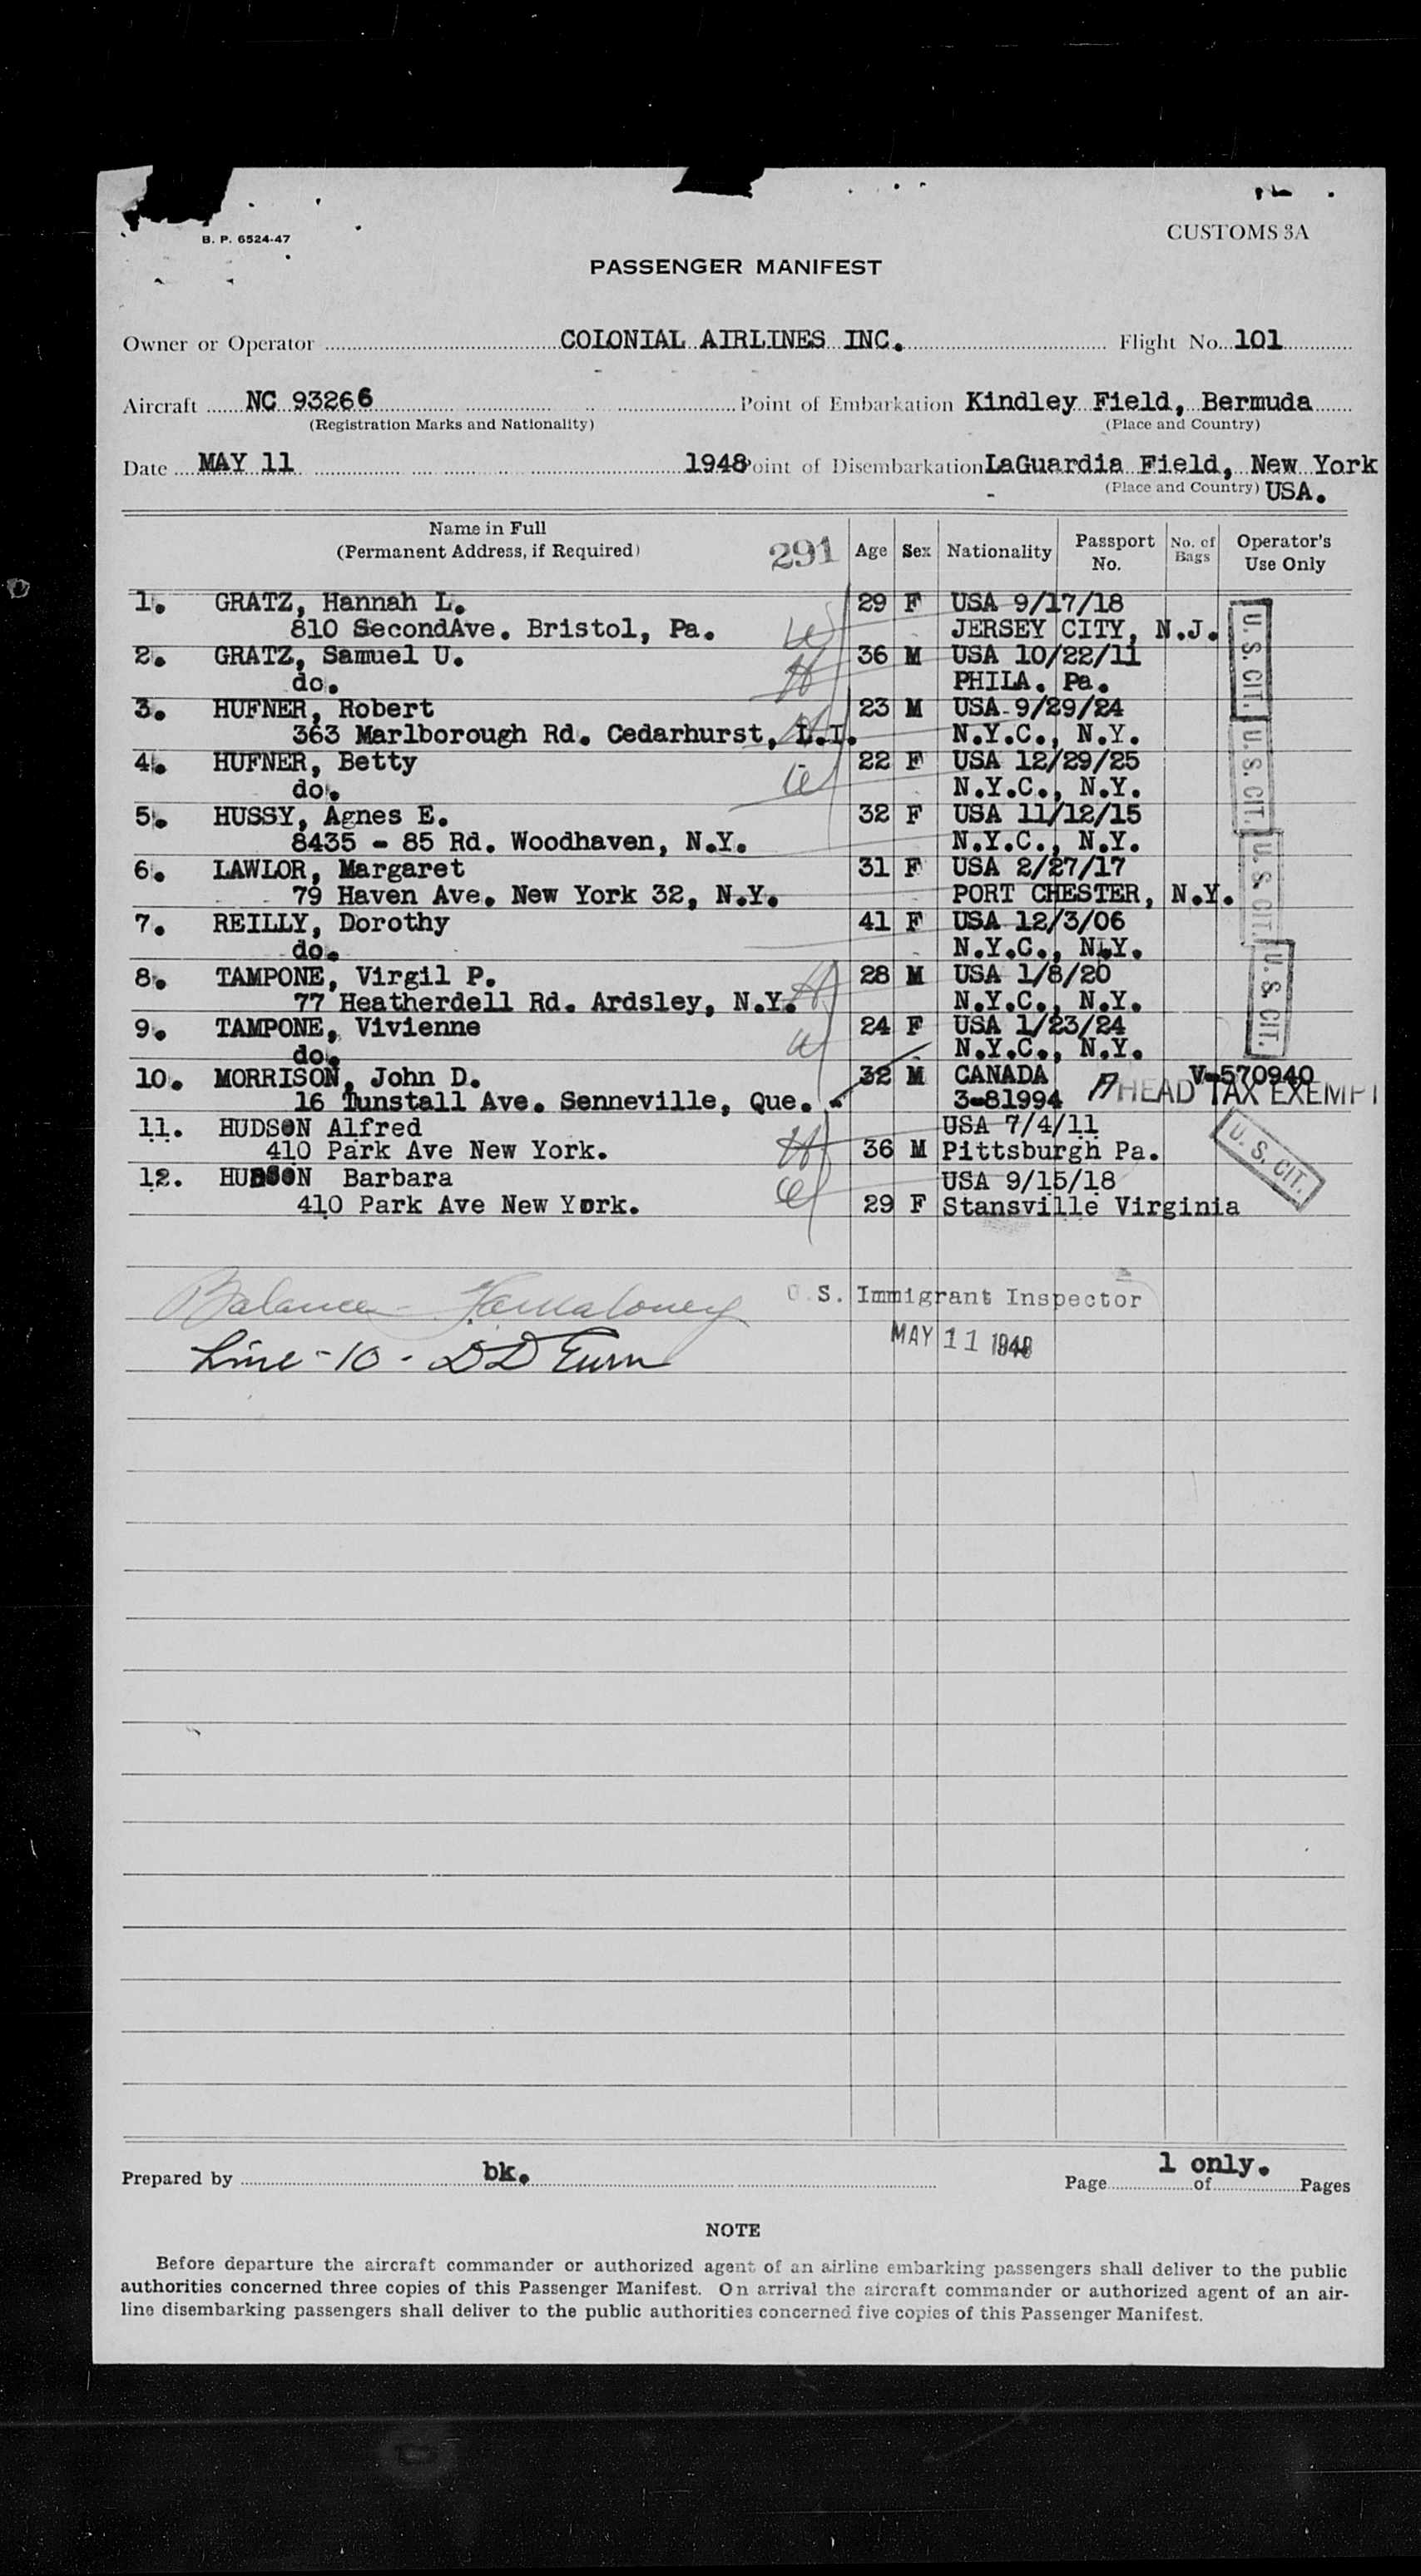 B. P. 6524-47
CUSTOMS 3A
PASSENGER MANIFEST
Owner or Operator COLONIAL AIRLINES INC. Flight No. 101
Aircraft NC 93266 Point of Embarkation Kindley Field, Bermuda
(Registration Marks and Nationality) (Place and Country)
Date MAY 11 1948 Point of Disembarkation LaGuardia Field, New York
(Place and Country) USA.
Name in Full
(Permanent Address, if Required) 291 Age Sex Nationality Passport No. No. of Bags Operator's Use Only
1. GRATZ, Hannah L. 29 F USA 9/17/18
810 SecondAve. Bristol, Pa. W JERSEY CITY, N.J. U. S. CIT.
2. GRATZ, Samuel U. 36 M USA 10/22/11
do. H PHILA. Pa.
3. HUFNER, Robert 23 M USA 9/29/24
363 Marlborough Rd. Cedarhurst, L.I. H N.Y.C., N.Y. U. S. CIT.
4. HUFNER, Betty 22 F USA 12/29/25
do. W N.Y.C., N.Y.
5. HUSSY, Agnes E. 32 F USA 11/12/15
8435 - 85 Rd. Woodhaven, N.Y. N.Y.C., N.Y. U. S. CIT.
6. LAWLOR, Margaret 31 F USA 2/27/17
79 Haven Ave. New York 32, N.Y. PORT CHESTER, N.Y.
7. REILLY, Dorothy 41 F USA 12/3/06
do. N.Y.C., N.Y. U. S. CIT.
8. TAMPONE, Virgil P. 28 M USA 1/8/20
77 Heatherdell Rd. Ardsley, N.Y. H N.Y.C., N.Y.
9. TAMPONE, Vivienne 24 F USA 1/23/24
do. W N.Y.C., N.Y.
10. MORRISON, John D. 32 M CANADA V-570940
16 Tunstall Ave. Senneville, Que. 3-81994 HEAD TAX EXEMPT
11. HUDSON Alfred USA 7/4/11
410 Park Ave New York. H 36 M Pittsburgh Pa. U. S. CIT.
12. HUDSON Barbara W USA 9/15/18
410 Park Ave New York. 29 F Stansville Virginia
Balance - U. S. Immigrant Inspector
MAY 11 1948
Line - 10 -
Prepared by bk. Page 1 only. of Pages
NOTE
Before departure the aircraft commander or authorized agent of an airline embarking passengers shall deliver to the public
authorities concerned three copies of this Passenger Manifest. On arrival the aircraft commander or authorized agent of an air-
line disembarking passengers shall deliver to the public authorities concerned five copies of this Passenger Manifest.